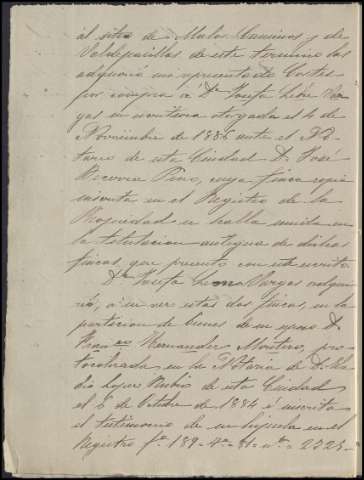 al sitio de Malos Caminos y de
Valdepacillas de este termino las
adquirio mi representado Cortes
por compra á Dª Josefa León Var
gas en escritura otorgada el 4 de
Noviembre de 1886 ante el No
tario de esta Ciudad D. José
Becerra Pino, cuya finca copia
inscrita en el Registro de la
Propiedad se halla unida en
la titulacion antigua de dichas
fincas, que presento con este escrito.
Dª Josefa Leon Vargas adqui
rió, á su vez estas dos fincas, en la
particion de bienes de su esposo D.
Franco Hernandez Montero, pro
tocolizada, en la Notaria de D.
Lopez Rubio de esta Ciudad
el 8 de Octubre de 1884 é inscrito
el testimonio de su hijuela en el
Registro fº 189 - 4ª - nº 2323 -